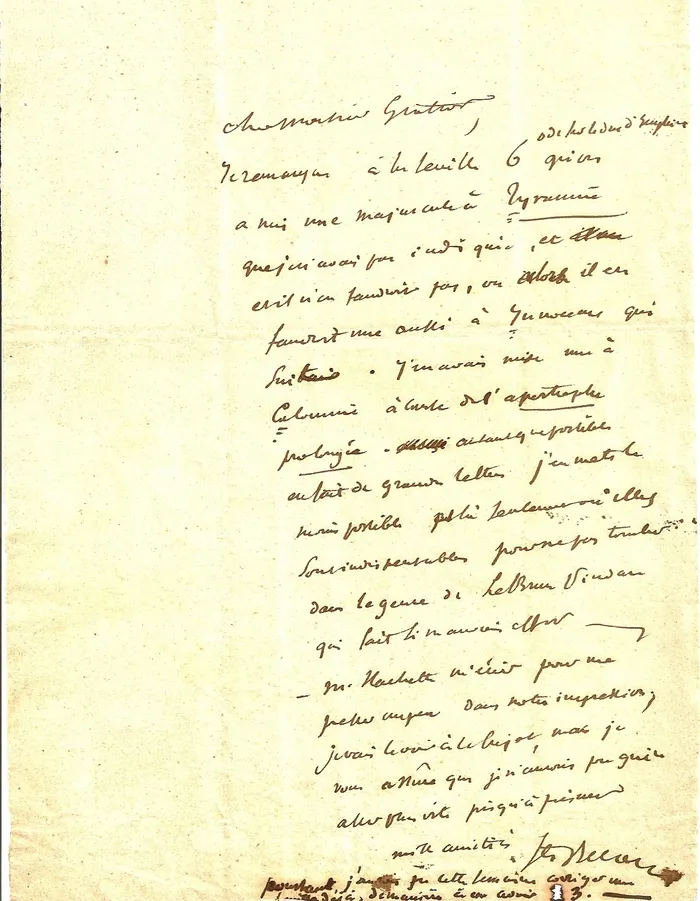 cher Monsieur Gratiot,
ode sur le duc d'Enghien
Je remarque à la feuille 6 qu'on
a mis une majuscule à Tyrannie
que je n'avais pas indiquée, et
et il n'en faudrait pas, ou alors il en
faudrait une aussi à Innocens qui
suit. J'en avais mise une à
Calomnie à cause de l'apostrophe
prolongée. autant que possible
en fait de grandes lettres j'en mets le
moins possible et là seulement où elles
sont indispensables pour ne pas tomber
dans le genre de LeBrun Pindare
qui fait si mauvais effet
— M. Hachette m'écrit pour me
presser dans notre impression;
je vais le voir à ce sujet, mais je
vous assure que je n'aurois pu guère
aller plus vite jusqu'à présent
mille amitiés
pourtant j'aurois pu cette semaine corriger une
demanière à en avoir 3.